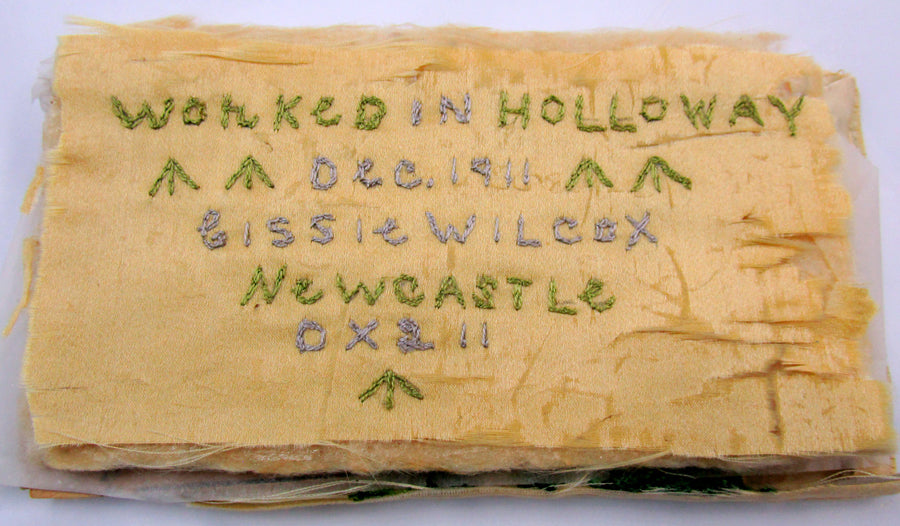 WORKeD IN HOLLOWAY
↑ ↑ DeC. 1911 ↑ ↑
CISSIe WILCOX
NeWCASTLe
DX2 11
↑